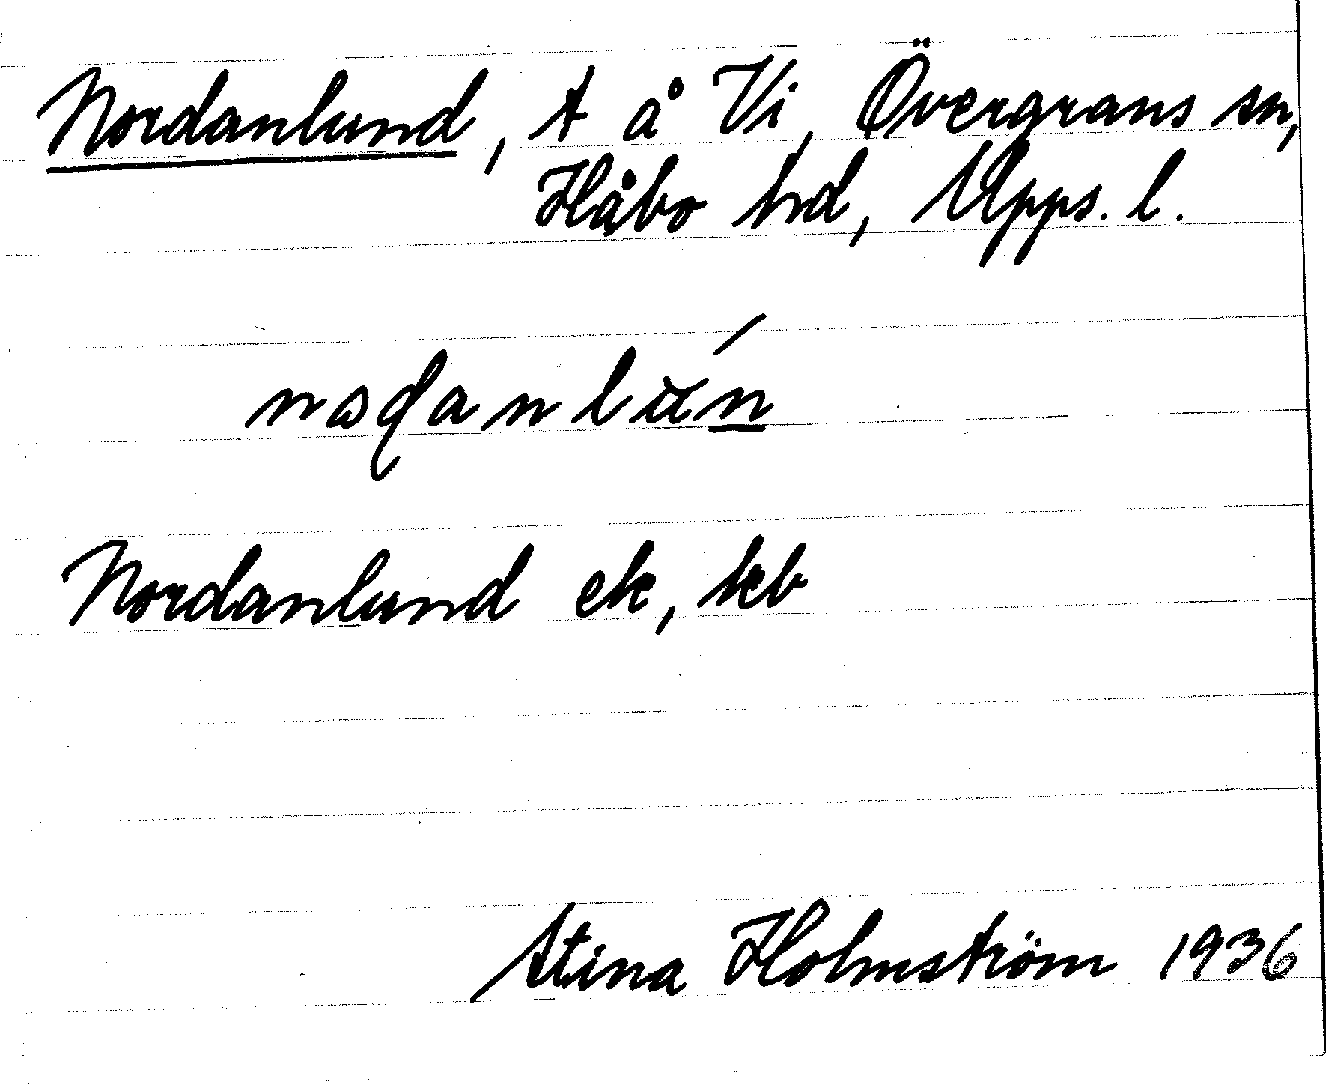 Nordanlund, t å Vi, Övergrans sn,
Håbo hd, Upps. l.
Nordanlund ek, kb
Stina Holmström 1936